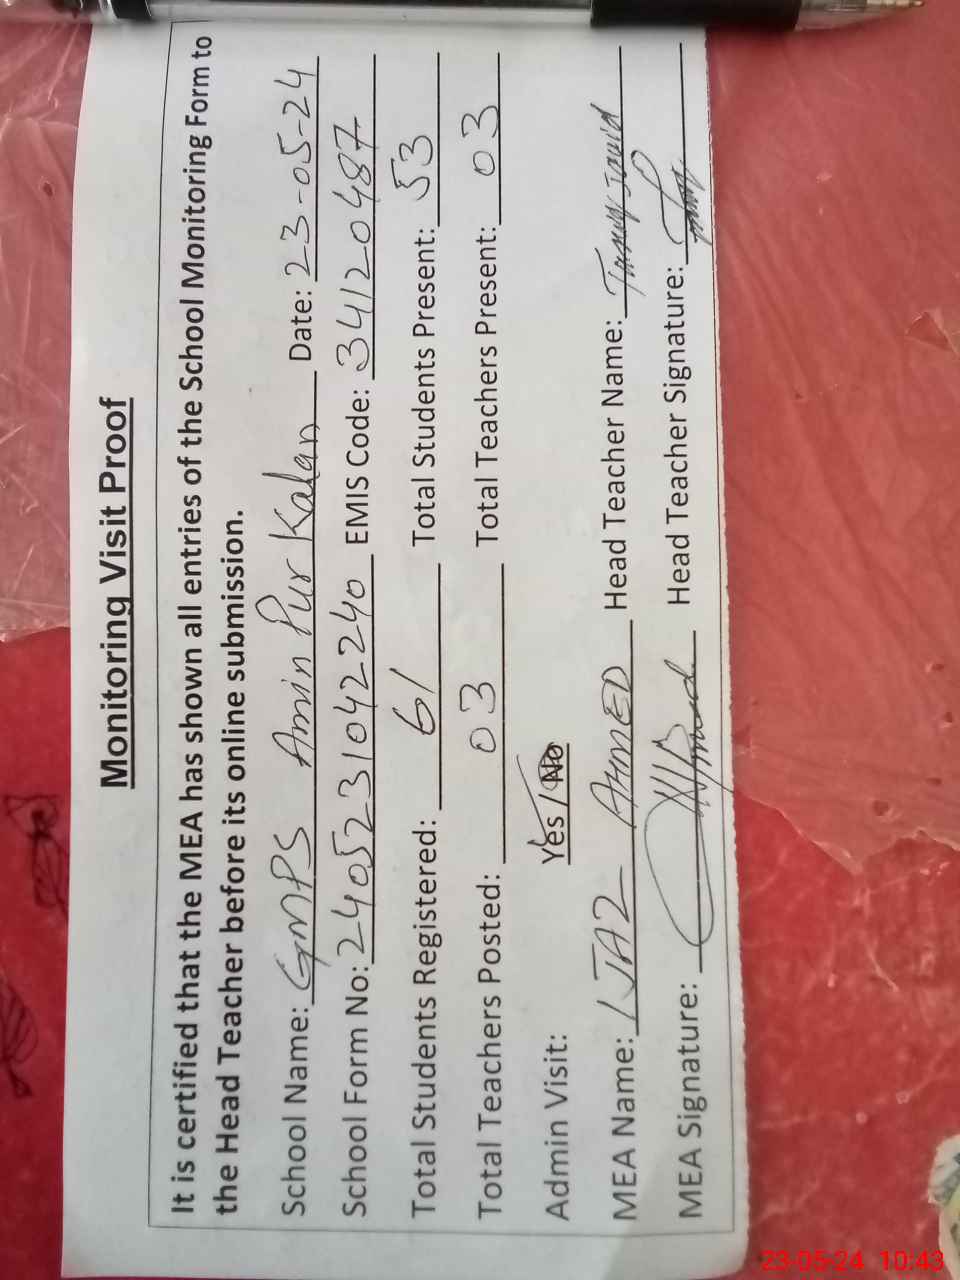 Monitoring Visit Proof
It is certified that the MEA has shown all entries of the School Monitoring Form to
the Head Teacher before its online submission.
School Name: GMPS Amin Pur Kalan Date: 23-05-24
School Form No: 2405231042240 EMIS Code: 34120487
Total Students Registered: 61 Total Students Present: 53
Total Teachers Posted: 03 Total Teachers Present: 03
Admin Visit: Yes / No
MEA Name: IJAZ AHMED Head Teacher Name: Javid
MEA Signature: Head Teacher Signature:
23-05-24 10:43